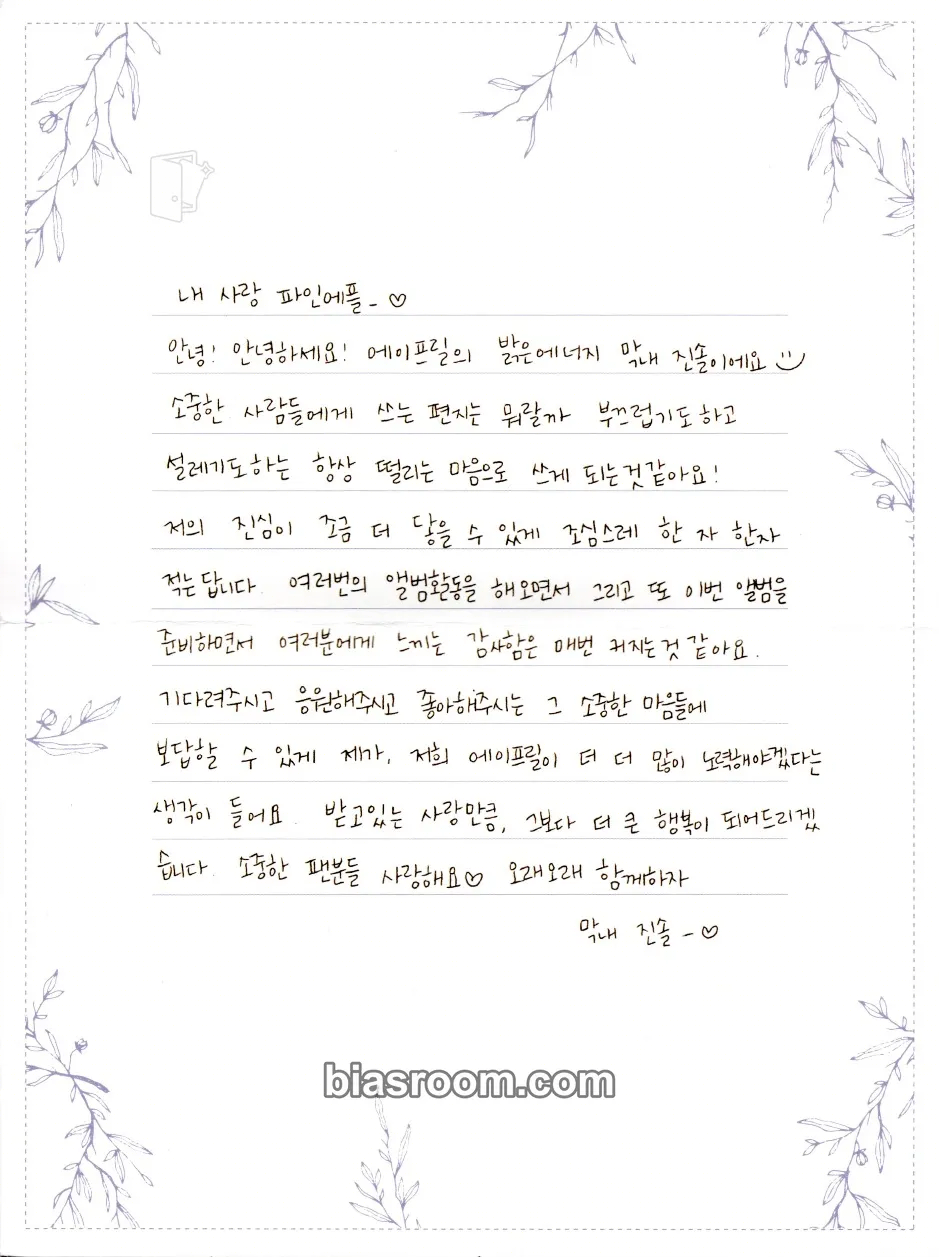 내 사랑 파인에플 - ♡
안녕! 안녕하세요! 에이프릴의 밝은에너지 막내 진솔이에요 :)
소중한 사람들에게 쓰는 편지는 뭐랄까 부끄럽기도하고
설레기도하는 항상 떨리는 마음으로 쓰게 되는것같아요!
저의 진심이 조금 더 닿을 수 있게 조심스레 한 자 한자
적는답니다. 여러번의 앨범활동을 해오면서 그리고 또 이번 앨범을
준비하면서 여러분에게 느끼는 감사함은 매번 커지는것 같아요.
기다려주시고 응원해주시고 좋아해주시는 그 소중한 마음들에
보답할 수 있게 제가, 저희 에이프릴이 더 더 많이 노력해야겠다는
생각이 들어요. 받고있는 사랑만큼, 그보다 더 큰 행복이 되어드리겠
습니다. 소중한 팬분들 사랑해요♡ 오래오래 함께하자
막내 진솔 - ♡
biasroom.com